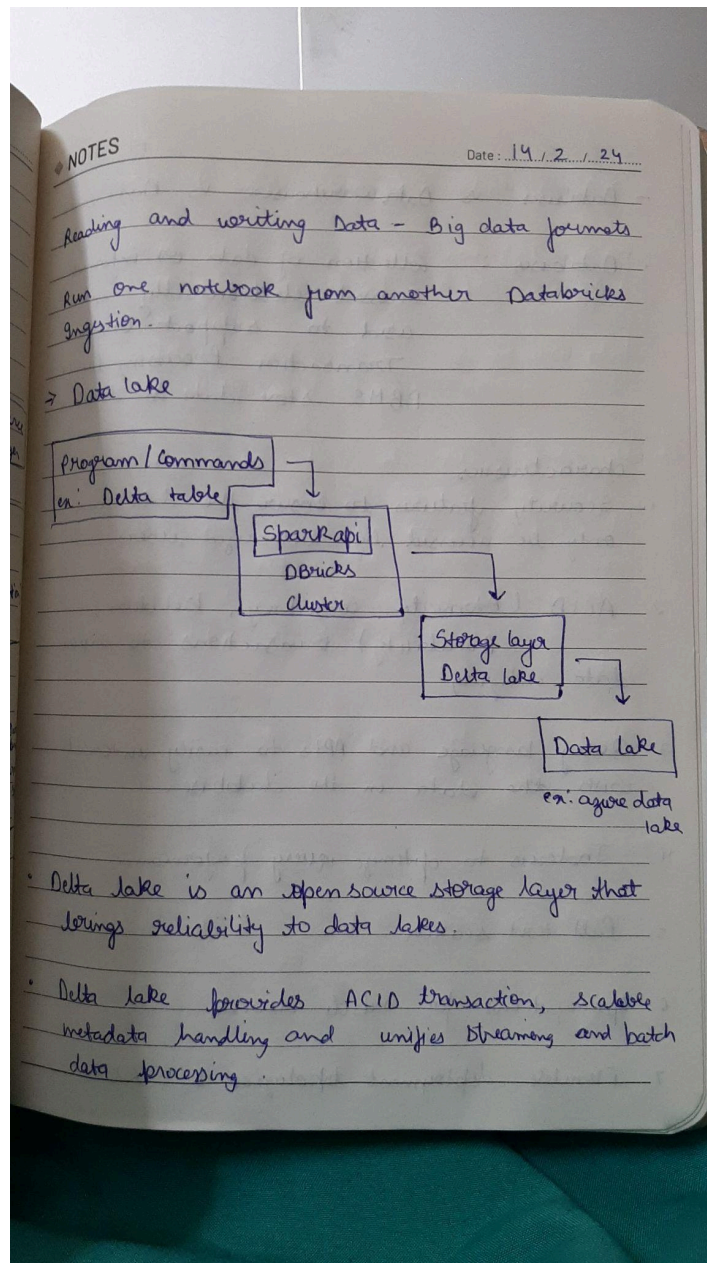 NOTES
Date : 14 / 2 / 24
Reading and writing Data - Big data formats
Run one notebook from another Databricks
Ingestion.
⇒ Data lake
Program / Commands
ex: Delta table
Spark api
DBricks
Cluster
Storage layer
Delta lake
Data lake
ex: azure data
lake
• Delta lake is an open source storage layer that
brings reliability to data lakes.
• Delta lake provides ACID transaction, scalable
metadata handling and unifies streaming and batch
data processing.